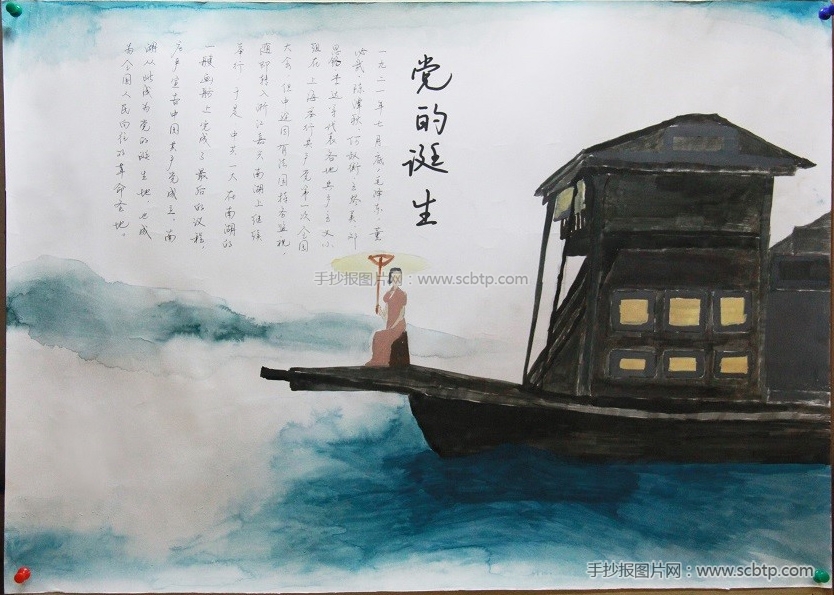 党的诞生
一九二一年七月底，毛泽东、董
必武、陈潭秋、何叔衡、王尽美、邓
恩铭、李达等代表各地共产主义小
组在上海举行共产党第一次全国
大会，但中途因有法国特务监视，
随即转入浙江嘉兴南湖上继续
举行。于是，中共一大在南湖的
一艘画船上完成了最后的议程，
庄严宣告中国共产党成立。南
湖从此成为党的诞生地，也成
为全国人民向往的革命圣地。
手抄报图片网：www.scbtp.com
手抄报图片网：www.scbtp.com